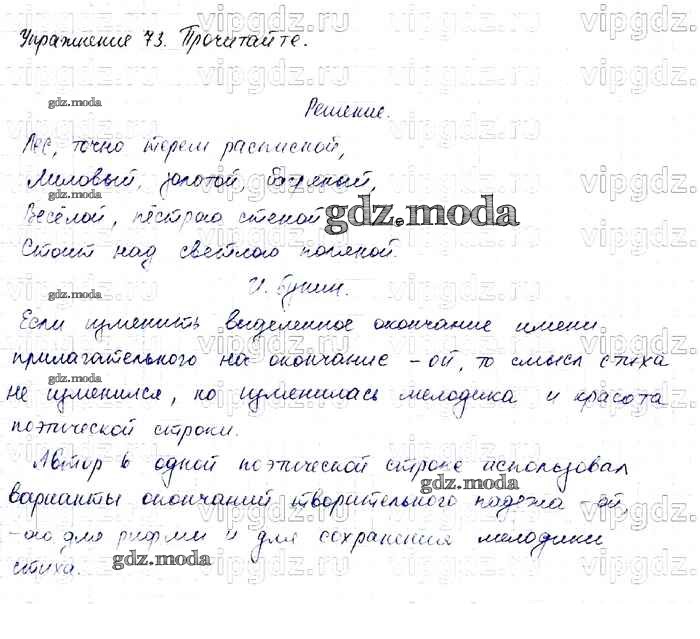 Упражнение 73. Прочитайте.
Решение.
Лес, точно терем расписной,
Лиловый, золотой, багряной,
Весёлой, пёстрою стеной
Стоит над светлою поляной.
И. Бунин.
Если изменить выделенное окончание имени
прилагательного на окончание -ой, то смысл стиха
не изменился, но изменилась мелодика и красота
поэтической строки.
Автор в одной поэтической строке использовал
варианты окончаний творительного падежа -ой,
-ою для рифмы и для сохранения мелодики
стиха.
gdz.moda
vipgdz.ru